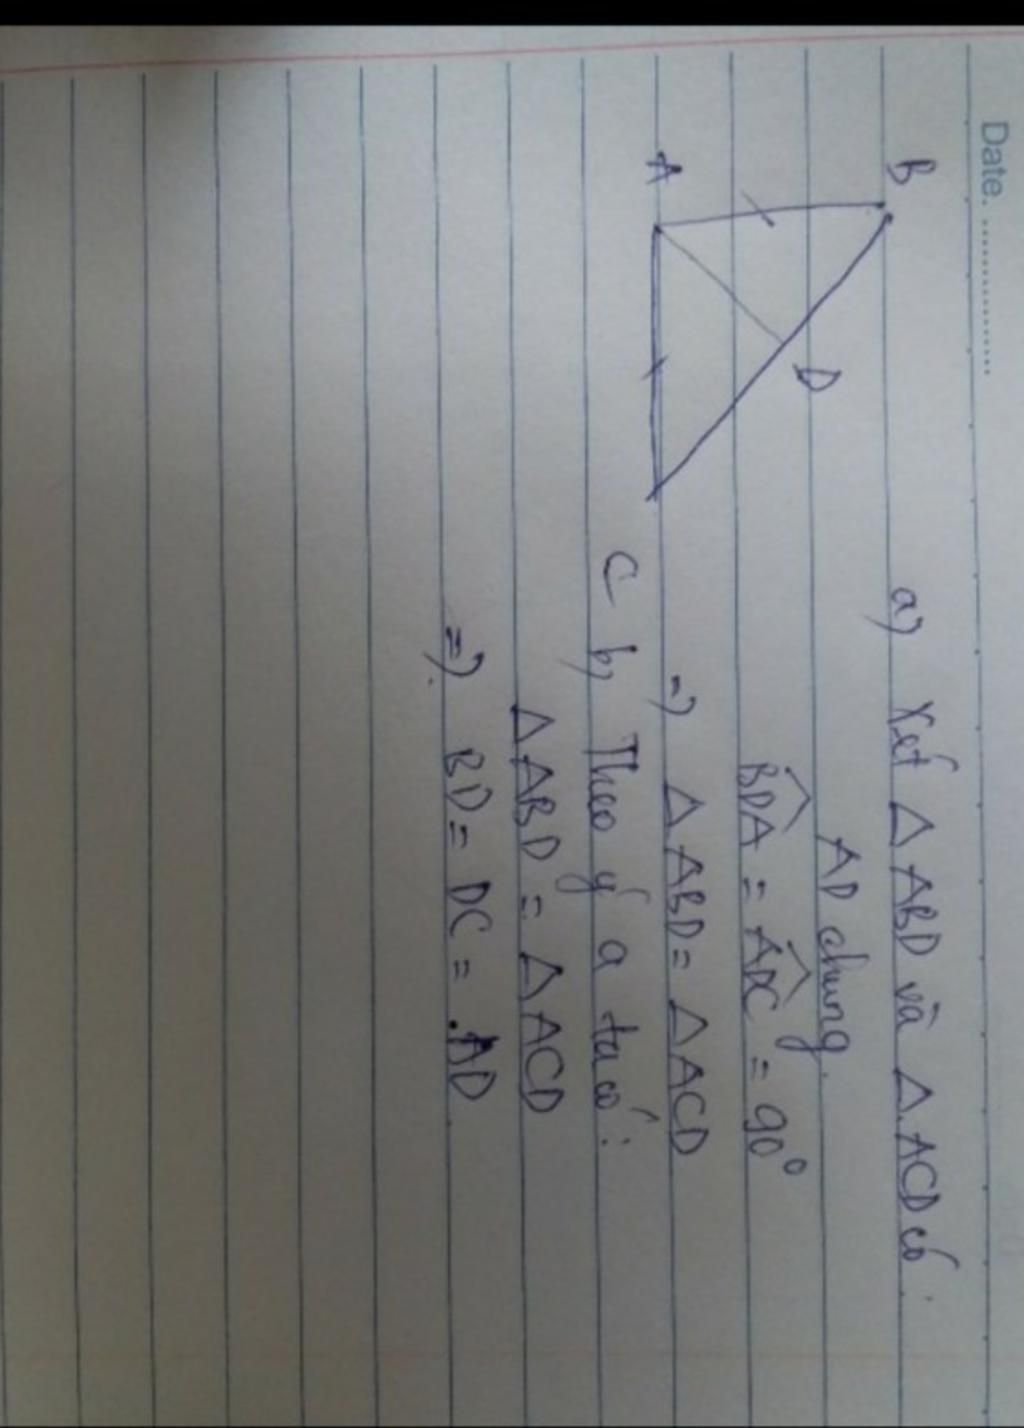 Date. ................
B
A
D
C
a) Xét Δ ABD và Δ ACD có:
AD chung
BDA = ADC = 90°
=) Δ ABD = Δ ACD
b) Theo ý a ta có:
Δ ABD = Δ ACD
=) BD = DC = AD